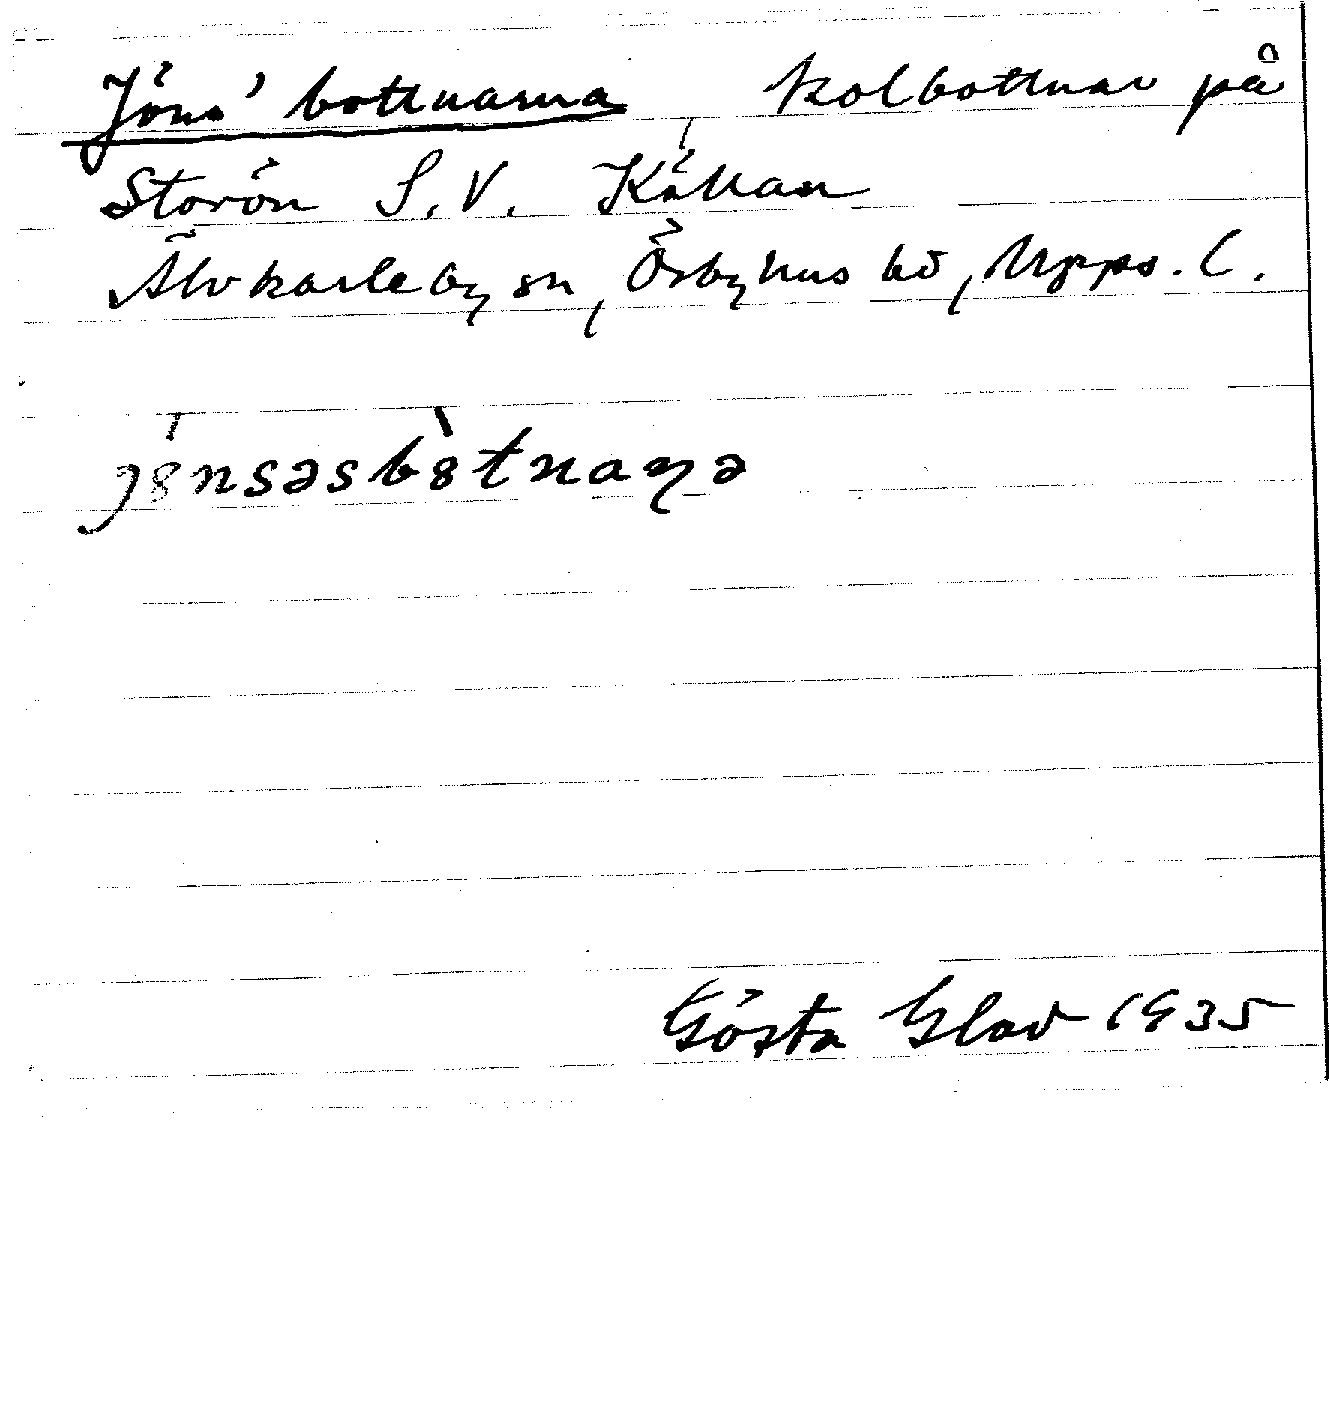 Jöns' bottnarna kolbottnar på
Storön S.V. Källan
Älvkarleby sn, Örbyhus hd, Upps. l.
jönsəsbòtnaɳə
Gösta Glad 1935